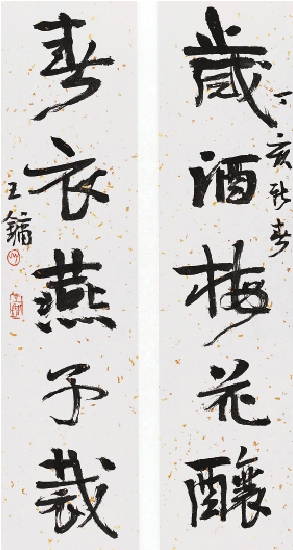 歲酒梅花釀
丁亥新春
春衣燕子裁
王鏞